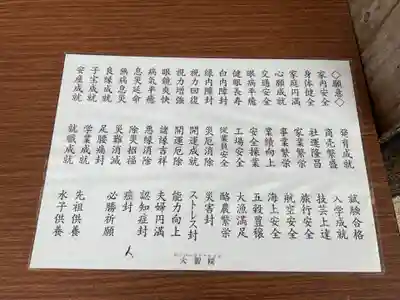 ◇願意◇
家内安全
身体健全
家庭円満
心願成就
交通安全
眼病平癒
健眼長寿
白内障封
緑内障封
視力回復
視力増強
眼鏡爽快
病気平癒
息災延命
無病息災
良縁成就
子宝成就
安産成就
発育成就
商売繁盛
社運隆昌
事業繁栄
業績向上
安全操業
工場安全
従業員安全
災厄消除
開運成就
開運厄除
諸縁吉祥
悪縁消除
除災招福
災難消滅
足腰痛封
学業成就
就職成就
試験合格
入学成就
技芸上達
旅行安全
航空安全
海上安全
五穀豊穣
大漁満足
酪農繁栄
災害封
ストレス封
能力向上
夫婦円満
認知症封
癌封
必勝祈願
先祖供養
水子供養